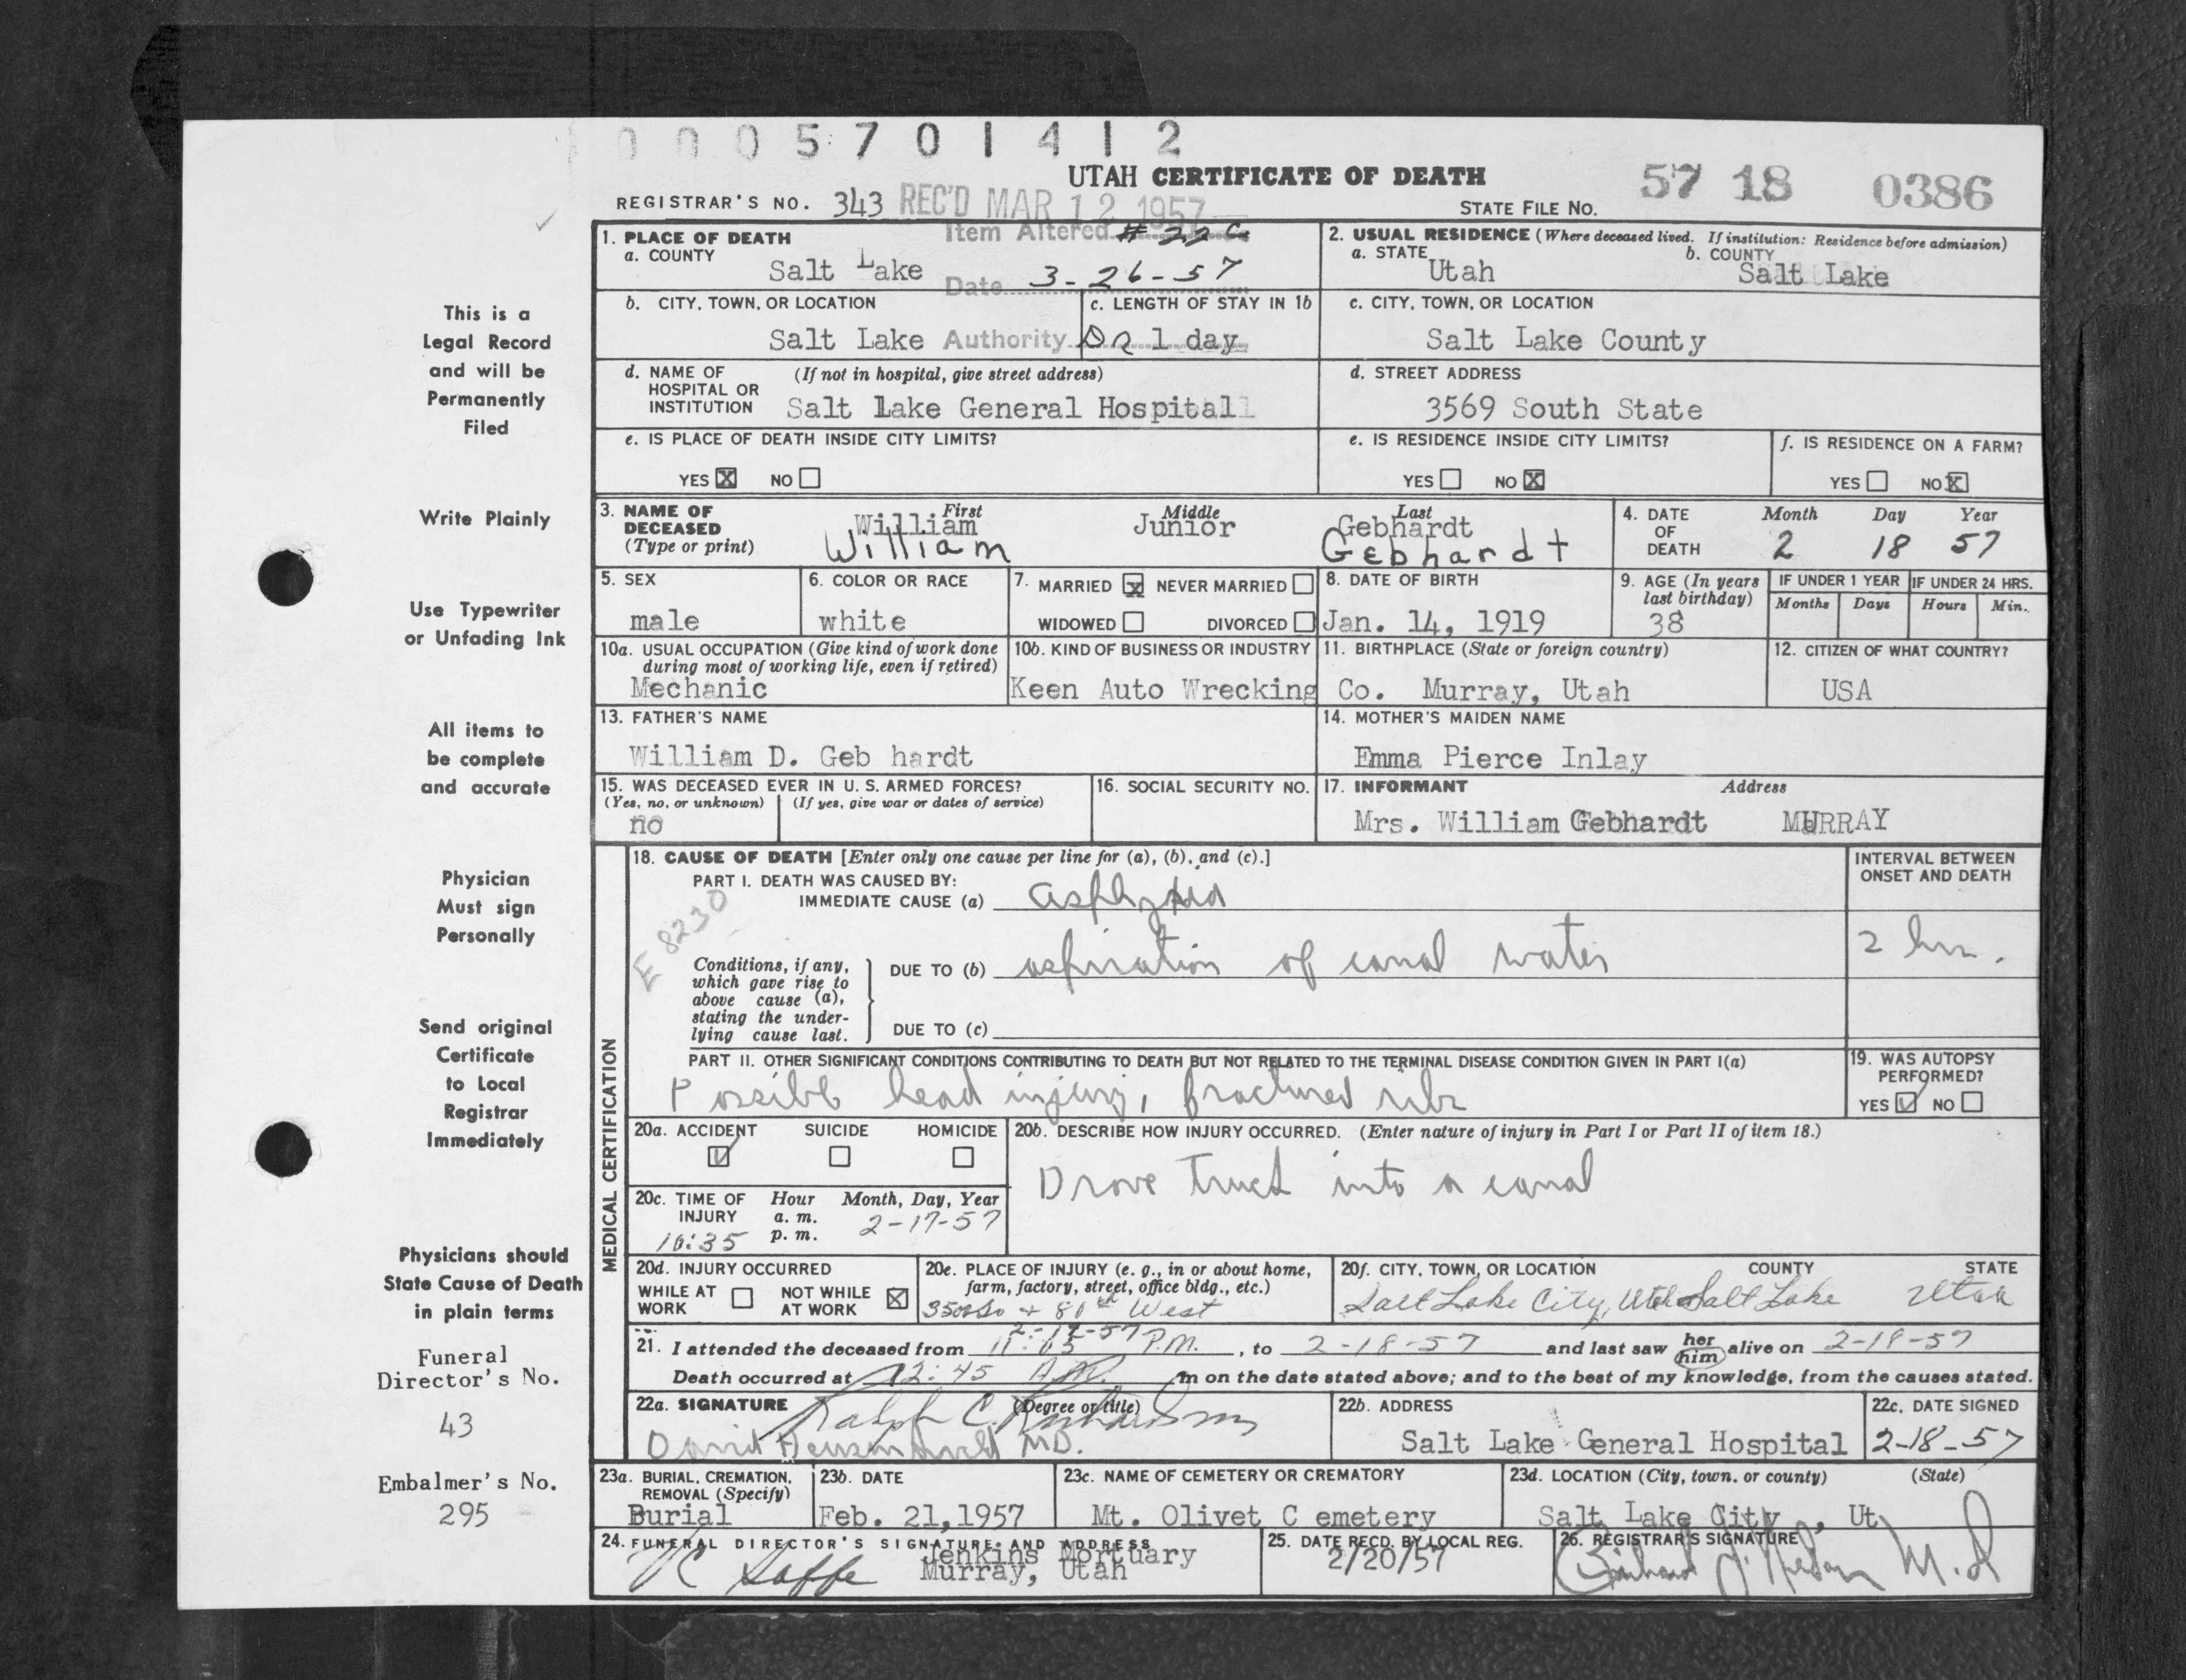 0005701412
UTAH CERTIFICATE OF DEATH
57 18 0386
REGISTRAR'S NO. 343 REC'D MAR 12 1957
STATE FILE NO.
This is a
Legal Record
and will be
Permanently
Filed
Write Plainly
Use Typewriter
or Unfading Ink
All items to
be complete
and accurate
Physician
Must sign
Personally
Send original
Certificate
to Local
Registrar
Immediately
Physicians should
State Cause of Death
in plain terms
Funeral
Director's No.
43
Embalmer's No.
295
1. PLACE OF DEATH
Item Altered # 22a
a. COUNTY
Salt Lake
Date 3-26-57
2. USUAL RESIDENCE (Where deceased lived. If institution: Residence before admission)
a. STATE Utah
b. COUNTY Salt Lake
b. CITY, TOWN, OR LOCATION
Salt Lake
Authority DR
c. LENGTH OF STAY IN 1b
1 day
c. CITY, TOWN, OR LOCATION
Salt Lake County
d. NAME OF HOSPITAL OR INSTITUTION (If not in hospital, give street address)
Salt Lake General Hospital
d. STREET ADDRESS
3569 South State
e. IS PLACE OF DEATH INSIDE CITY LIMITS?
YES X NO
e. IS RESIDENCE INSIDE CITY LIMITS?
YES NO X
f. IS RESIDENCE ON A FARM?
YES NO X
3. NAME OF DECEASED (Type or print)
First Middle Last
William Junior Gebhardt
William Gebhardt
4. DATE OF DEATH
Month Day Year
2 18 57
5. SEX
male
6. COLOR OR RACE
white
7. MARRIED X NEVER MARRIED
WIDOWED DIVORCED
8. DATE OF BIRTH
Jan. 14, 1919
9. AGE (In years last birthday)
38
IF UNDER 1 YEAR
Months Days
IF UNDER 24 HRS.
Hours Min.
10a. USUAL OCCUPATION (Give kind of work done during most of working life, even if retired)
Mechanic
10b. KIND OF BUSINESS OR INDUSTRY
Keen Auto Wrecking Co.
11. BIRTHPLACE (State or foreign country)
Murray, Utah
12. CITIZEN OF WHAT COUNTRY?
USA
13. FATHER'S NAME
William D. Geb hardt
14. MOTHER'S MAIDEN NAME
Emma Pierce Inlay
15. WAS DECEASED EVER IN U. S. ARMED FORCES?
(Yes, no, or unknown) (If yes, give war or dates of service)
no
16. SOCIAL SECURITY NO.
17. INFORMANT Address
Mrs. William Gebhardt MURRAY
MEDICAL CERTIFICATION
18. CAUSE OF DEATH [Enter only one cause per line for (a), (b), and (c).]
PART I. DEATH WAS CAUSED BY:
IMMEDIATE CAUSE (a) asphyxia
E 8230
Conditions, if any, which gave rise to above cause (a), stating the underlying cause last.
DUE TO (b) aspiration of canal water
DUE TO (c)
INTERVAL BETWEEN ONSET AND DEATH
2 hrs.
PART II. OTHER SIGNIFICANT CONDITIONS CONTRIBUTING TO DEATH BUT NOT RELATED TO THE TERMINAL DISEASE CONDITION GIVEN IN PART I(a)
Possible head injury, fractured ribs
19. WAS AUTOPSY PERFORMED?
YES ✓ NO
20a. ACCIDENT SUICIDE HOMICIDE
✓
20b. DESCRIBE HOW INJURY OCCURRED. (Enter nature of injury in Part I or Part II of item 18.)
Drove truck into a canal
20c. TIME OF INJURY Hour Month, Day, Year
a. m.
p. m.
10:35 2-17-57
20d. INJURY OCCURRED
WHILE AT WORK NOT WHILE AT WORK X
20e. PLACE OF INJURY (e. g., in or about home, farm, factory, street, office bldg., etc.)
3500 So + 80th West
20f. CITY, TOWN, OR LOCATION COUNTY STATE
Salt Lake City, Utah Salt Lake Utah
21. I attended the deceased from 2-17-57 11:05 P.M., to 2-18-57 and last saw her him alive on 2-18-57
Death occurred at 12:45 A.M. m on the date stated above; and to the best of my knowledge, from the causes stated.
22a. SIGNATURE (Degree or title)
Ralph C. Richardson
David MD.
22b. ADDRESS
Salt Lake General Hospital
22c. DATE SIGNED
2-18-57
23a. BURIAL, CREMATION, REMOVAL (Specify)
Burial
23b. DATE
Feb. 21, 1957
23c. NAME OF CEMETERY OR CREMATORY
Mt. Olivet C emetery
23d. LOCATION (City, town, or county) (State)
Salt Lake City, Ut
24. FUNERAL DIRECTOR'S SIGNATURE AND ADDRESS
Jenkins Mortuary
Murray, Utah
25. DATE RECD. BY LOCAL REG.
2/20/57
26. REGISTRAR'S SIGNATURE
M.D